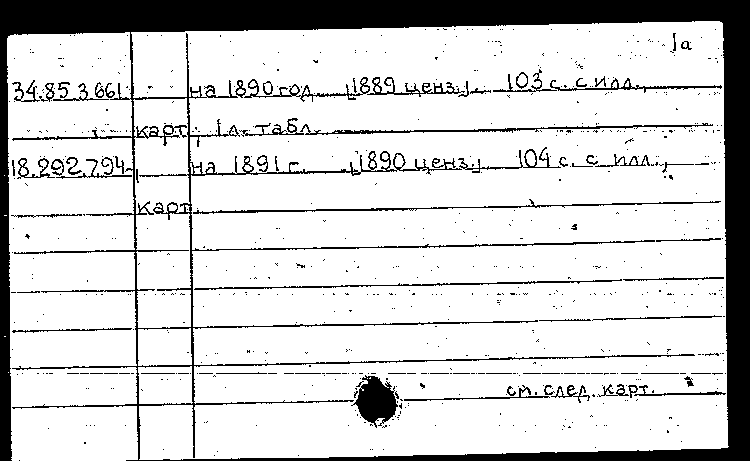 1а
34.85.3.661 на 1890 год. [1889 ценз.]. 103 с. с илл.,
карт; 1 л. табл.
18.292.7.94 на 1891 г. [1890 ценз.] 104 с. с илл.,
карт.
см. след. карт.